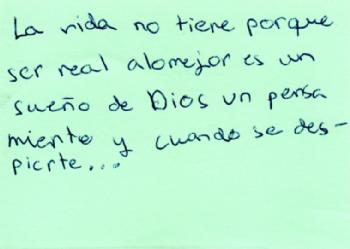 La vida no tiene porque
ser real alomejor es un
sueño de Dios un pensa
miento y cuando se des-
pierte...